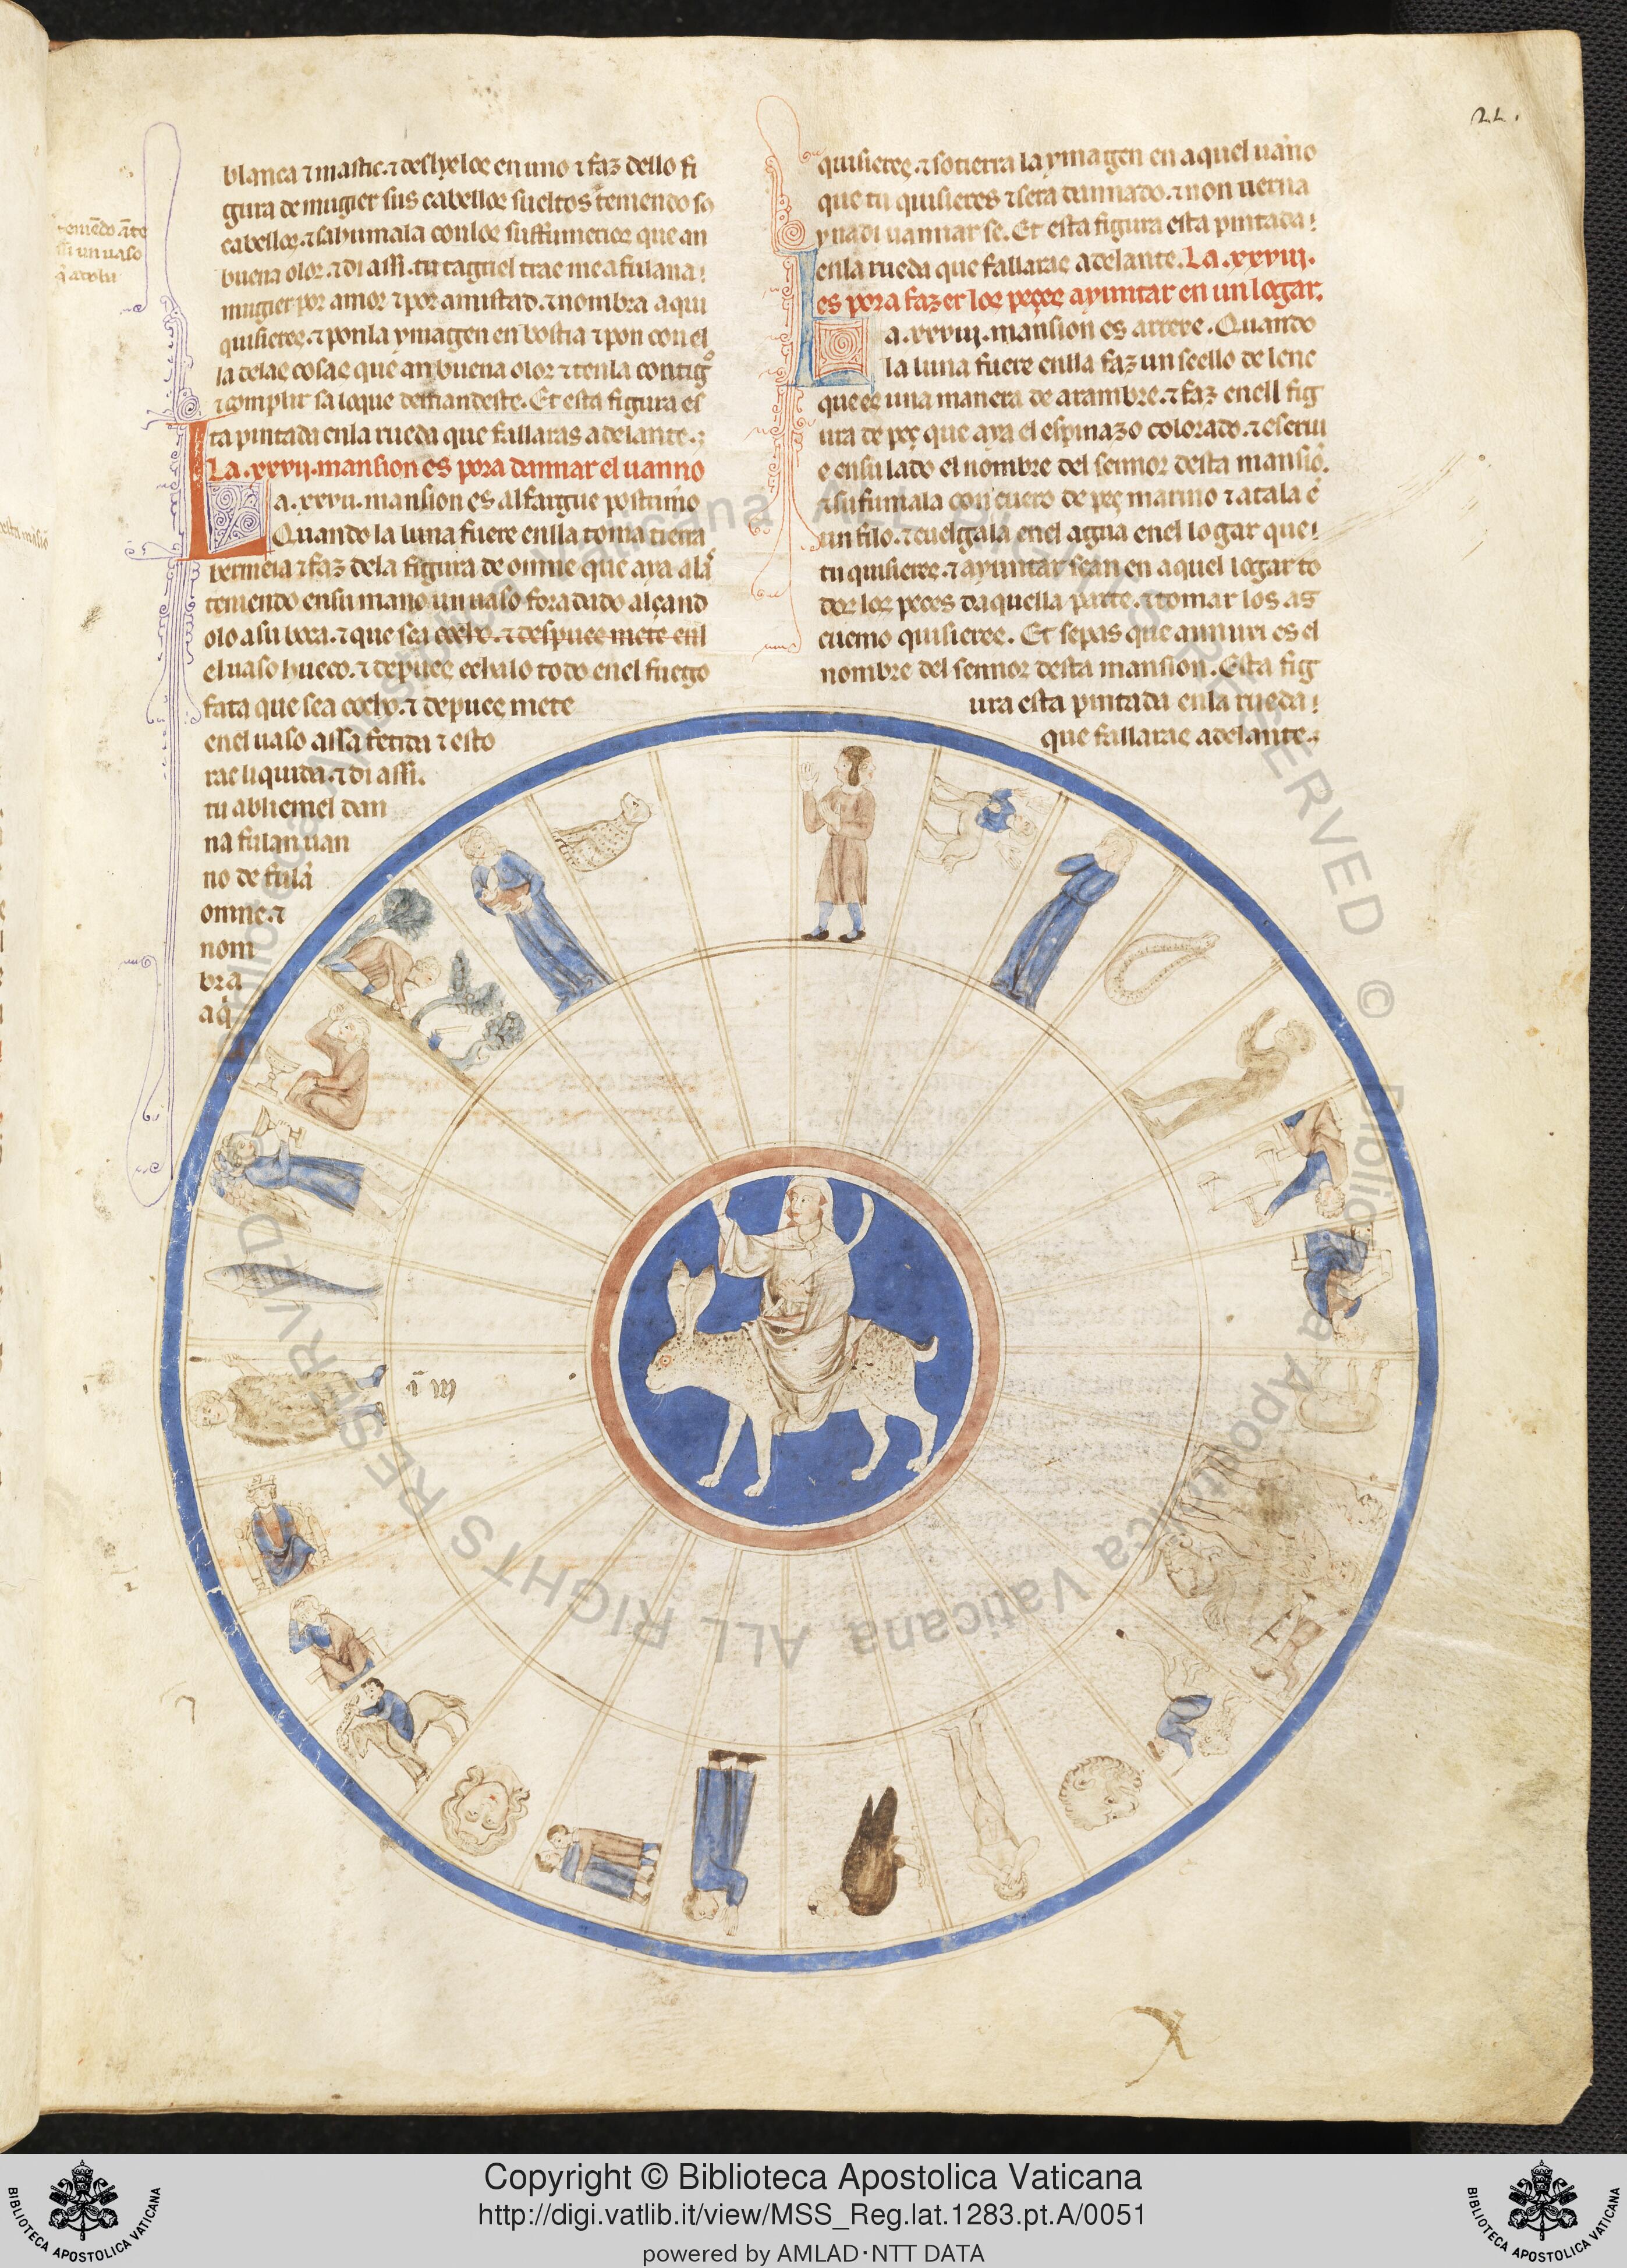 22.
blanca ⁊ mastic. ⁊ deslyelos en uno ⁊ faz dello fi
gura de mugier sus cabellos sueltos teniendo so
cabellos. ⁊ sahumala con los suffumerios que an
buena olor. ⁊ di assi. tu tagriel trae me a fulana
mugier por amor ⁊ por amistad. ⁊ nombra a qui
quisieres. ⁊ pon la ymagen en bostia ⁊ pon con el
la delas cosas que an buena olor ⁊ tenla contigo
⁊ complir sa lo que demandeste. Et esta figura es
ta pintada en la rueda que fallaras adelante.
La .xxvij. mansion es pora dannar el uanno
La .xxvij. mansion es alfargue postrimo
Quando la luna fuere en lla toma tierra
bermeia ⁊ faz de la figura de omne que aya alas
teniendo en su mano un uaso foradado alçand
olo a su boca. ⁊ que sea cocho. ⁊ despues mete enl
el uaso hueco. ⁊ depues echalo todo en el fuego
fata que sea cocho. ⁊ depues mete
en el uaso assa fetida ⁊ esto
rac liquida. ⁊ di assi.
tu abliemel dan
na fulan uan
no de fulan
omne. ⁊
nom
bra
a q̃
quisieres. ⁊ sotierra la ymagen en aquel uanno
que tu quisieres ⁊ sera dannado. ⁊ non uerna
y nadi uannar se. Et esta figura esta pintada
en la rueda que fallaras adelante. La .xxviij.
es pora fazer los peçes ayuntar en un logar.
La .xxviij. mansion es arrexe. Quando
la luna fuere en lla faz un seello de lene
que es una manera de arambre. ⁊ faz en ell fig
ura de peç que aya el espinazo colorado. ⁊ escriu
e en su lado el nombre del sennor desta mansion.
⁊ sufumala con cuero de peç marino ⁊ atala en
un filo. ⁊ cuelgala en el agua en el logar que
tu quisieres. ⁊ ayuntar sean en aquel logar to
dos los peces daquella parte. ⁊ tomar los as
cuemo quisieres. Et sepas que annuri es el
nombre del sennor desta mansion. Esta fig
ura esta pintada en la rueda
que fallaras adelante.
Biblioteca Apostolica Vaticana ALL RIGHTS RESERVED ©
Biblioteca Apostolica Vaticana ALL RIGHTS RESERVED ©
Copyright © Biblioteca Apostolica Vaticana
http://digi.vatlib.it/view/MSS_Reg.lat.1283.pt.A/0051
powered by AMLAD·NTT DATA
BIBLIOTECA APOSTOLICA VATICANA
BIBLIOTECA APOSTOLICA VATICANA